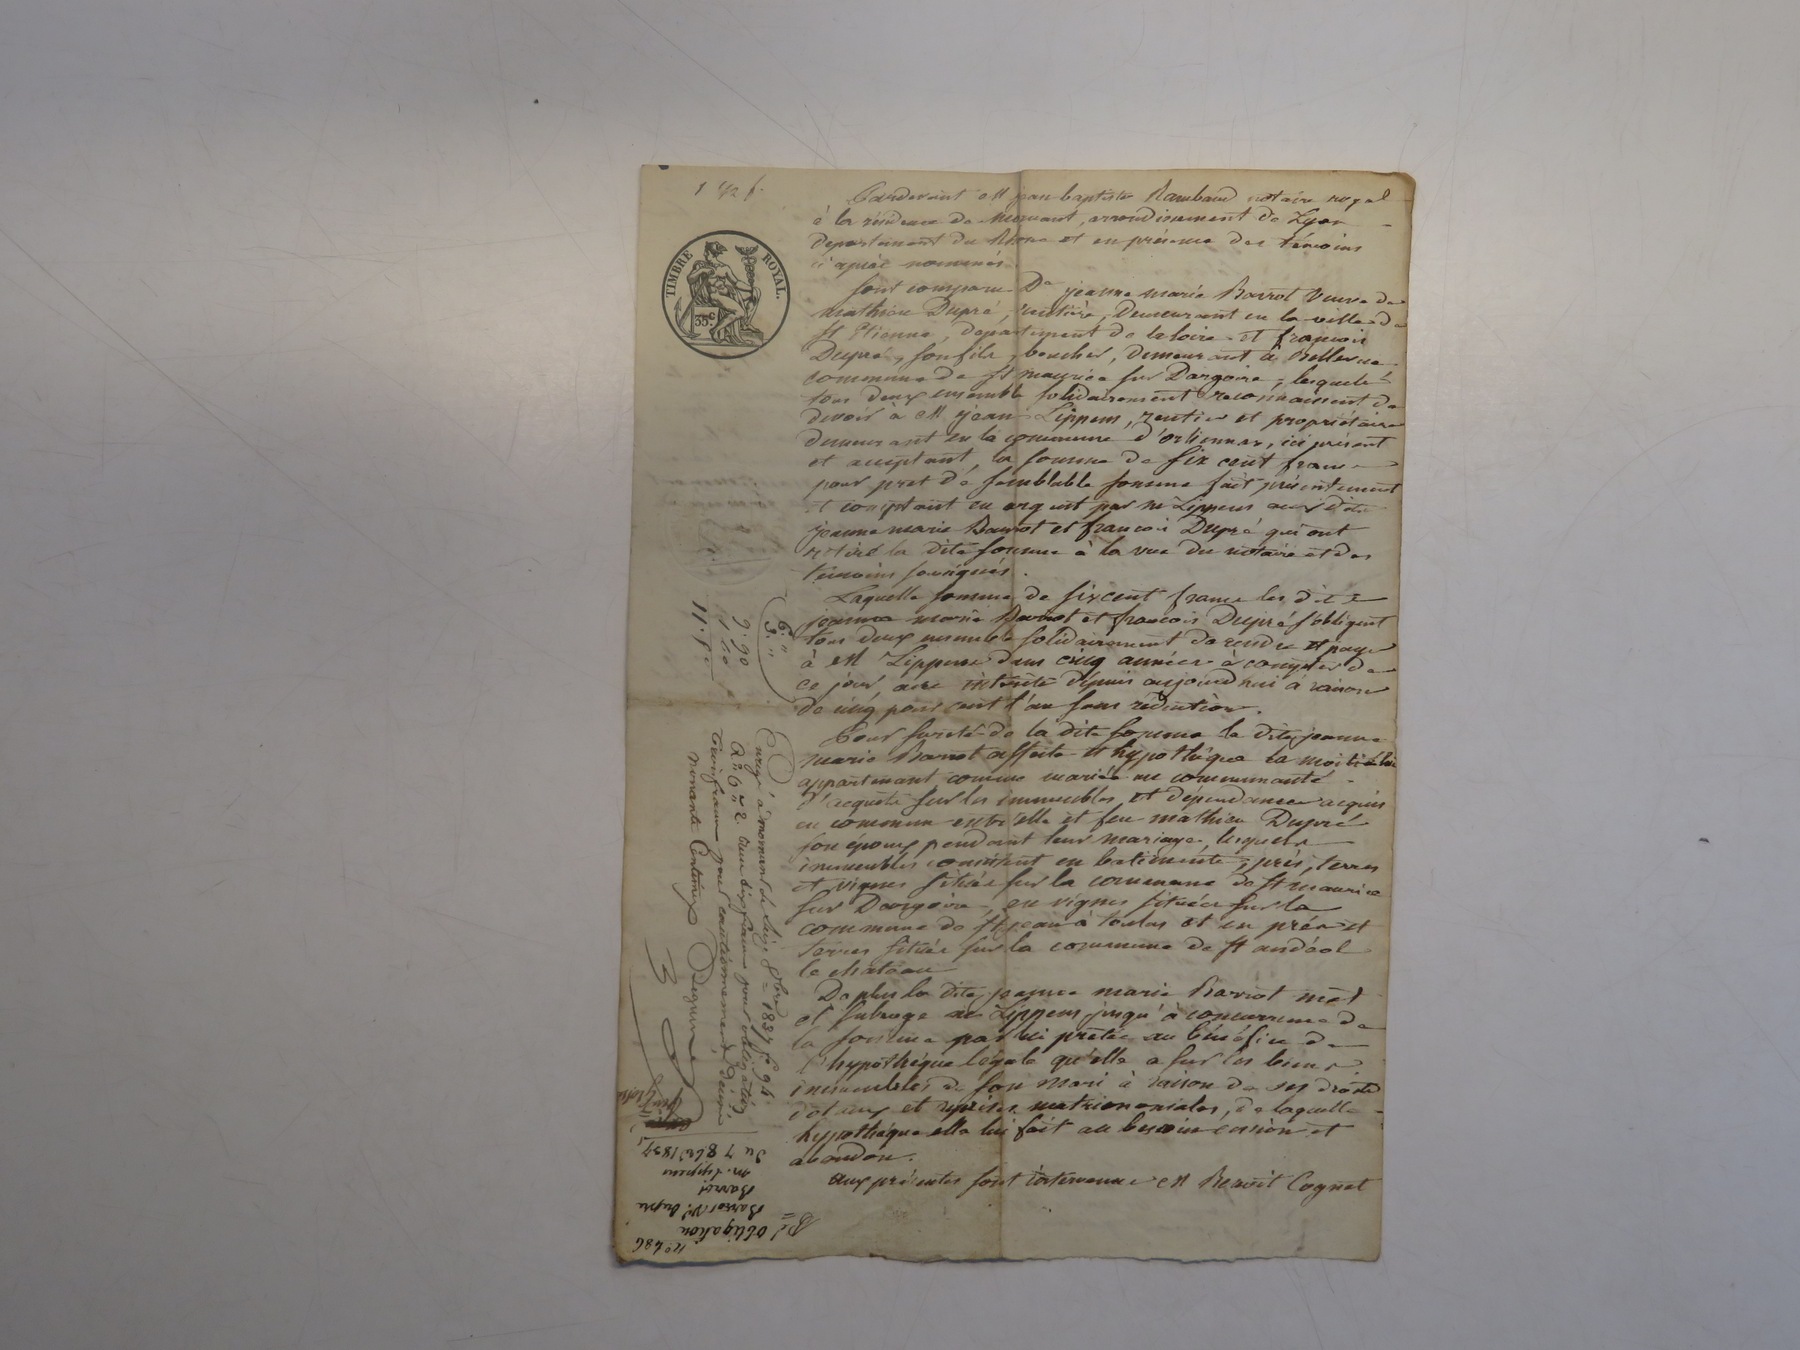 1 1/2 f.
TIMBRE ROYAL.
35 c
Pardevant Me jean baptiste Rambaud notaire royal
à la résidence de Mornant, arrondissement de Lyon
département du Rhône et en présence des témoins
ci après nommés
Sont comparu De jeanne marie Barrot Veuve de
mathieu Dupré, rentière, demeurant en la ville de
St Etienne, département de la loire et francois
Dupré, son fils, boucher, demeurant à Bellevue
commune de St maurice sur Dargoire, lesquels
tous deux ensemble solidairement reconnaissent de
devoir à Mr jean Lippens, rentier et propriétaire
demeurant en la commune d'orlienas, ici présent
et acceptant, la somme de six cent francs
pour pret de semblable somme fait présentement
et comptant en argent par mr Lippens aux dits
jeanne marie Barrot et francois Dupré qui ont
retiré la dite somme à la vue du notaire et des
témoins soussignés.
Laquelle somme de six cent francs les dits
jeanne marie Barrot et francois Dupré s'obligent
tous deux ensemble solidairement de rendre et payer
à Mr Lippens dans cinq années à compter de
ce jour, avec intérêts depuis aujourd'hui à raison
de cinq pour cent l'an sans rédution.
Pour sureté de la dite somme la dite jeanne
marie Barrot affecte et hypothèque la moitié lui
appartenant comme mariée en communauté
d'acquets sur les immeubles, et dépendances acquis
en commun entr'elle et feu mathieu Dupré
son époux pendant leur mariage, lesquels
immeubles consistent en batiments, prés, terres
et vignes situés sur la commune de St maurice
sur Dargoire, en vignes situées sur la
commune de St jean à toulas et en prés et
terres situés sur la commune de St andéol
le chateau
De plus la dite jeanne marie Barrot met
et subroge mr Lippens jusqu'à concurrence de
la somme par lui prêtée au bénéfice de
l'hypothèque légale qu'elle a sur les biens
immeubles de son mari à raison de ses droits
dotaux et reprises matrimoniales, de laquelle
hypothèque elle lui fait au besoin cession et
abandon.
Aux présentes sont intervenus Mr Benoît Cognet
6. "
3. "
9. 90
11. f
Enregé à mornant le seize 8bre 1837 fo 94
Ro 6 ce 2. Reçu six francs pour obligation
trois francs pour cautionnement, décime
nonante centimes
No 486
obligation
Barrot Ve Dupré
Barrot
M. Lippens
Du 7 8bre 1837